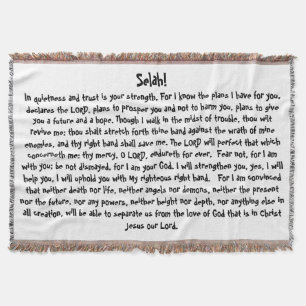 Selah!
In quietness and trust is your strength. For I know the plans I have for you,
declares the LORD, plans to prosper you and not to harm you, plans to give
you a future and a hope. Though I walk in the midst of trouble, thou wilt
revive me; thou shalt stretch forth thine hand against the wrath of mine
enemies, and thy right hand shall save me. The LORD will perfect that which
concerneth me: thy mercy, O LORD, endureth for ever. Fear not, for I am
with you; be not dismayed, for I am your God. I will strengthen you, yes, I will
help you, I will uphold you with My righteous right hand. For I am convinced
that neither death nor life, neither angels nor demons, neither the present
nor the future, nor any powers, neither height nor depth, nor anything else in
all creation, will be able to separate us from the love of God that is in Christ
Jesus our Lord.